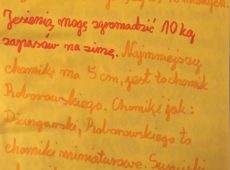 Jesienią mogę zgromadzić 10 kg
zapasów na zimę. Najmniejszy
chomik ma 5 cm, jest to chomik
Roborowskiego. Chomiki jak:
Dżungarski, Roborowskiego to
chomiki miniaturowe.